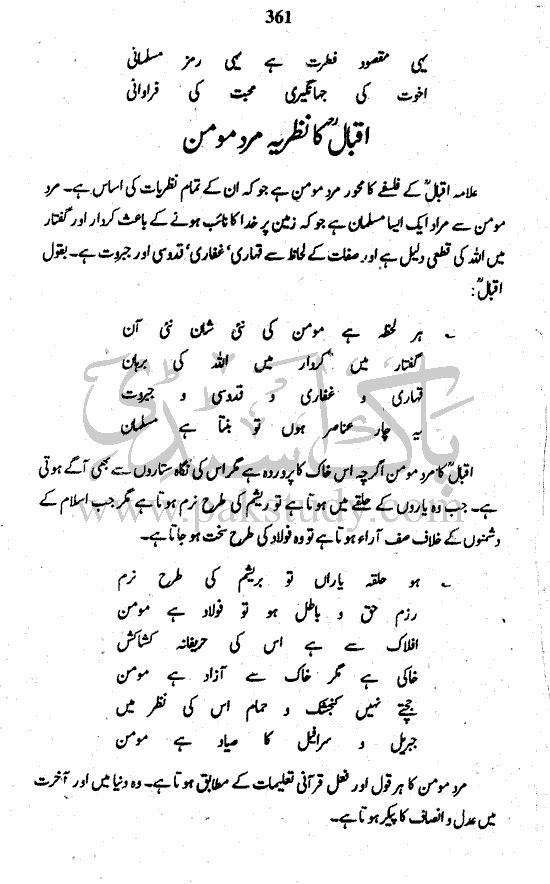 361
یہی مقصود فطرت ہے یہی رمز مسلمانی
اخوت کی جہانگیری محبت کی فراوانی
اقبالؒ کا نظریہ مرد مومن
علامہ اقبالؒ کے فلسفے کا محور مرد مومن ہے جو کہ ان کے تمام نظریات کی اساس ہے۔ مرد
مومن سے مراد ایک ایسا مسلمان ہے جو کہ زمین پر خدا کا نائب ہونے کے باعث کردار اور گفتار
میں اللہ کی قطعی دلیل ہے اور صفات کے لحاظ سے قہاری، غفاری، قدوسی اور جبروت ہے۔ بقول
اقبالؒ:
ہر لحظہ ہے مومن کی نئی شان نئی آن
گفتار میں کردار میں اللہ کی برہان
قہاری و غفاری و قدوسی و جبروت
یہ چار عناصر ہوں تو بنتا ہے مسلمان
پاک اسٹڈی
www.pakstudy.com
اقبالؒ کا مرد مومن اگرچہ اس خاک کا پروردہ ہے مگر اس کی نگاہ ستاروں سے بھی آگے ہوتی
ہے۔ جب وہ یاروں کے حلقے میں ہوتا ہے تو ریشم کی طرح نرم ہوتا ہے مگر جب اسلام کے
دشمنوں کے خلاف صف آراء ہوتا ہے تو وہ فولاد کی طرح سخت ہو جاتا ہے۔
ہو حلقہ یاراں تو بریشم کی طرح نرم
رزم حق و باطل ہو تو فولاد ہے مومن
افلاک سے ہے اس کی حریفانہ کشاکش
خاکی ہے مگر خاک سے آزاد ہے مومن
جچتے نہیں کنجشک و حمام اس کی نظر میں
جبریل و سرافیل کا صیاد ہے مومن
مرد مومن کا ہر قول اور فعل قرآنی تعلیمات کے مطابق ہوتا ہے۔ وہ دنیا میں اور آخرت
میں عدل و انصاف کا پیکر ہوتا ہے۔